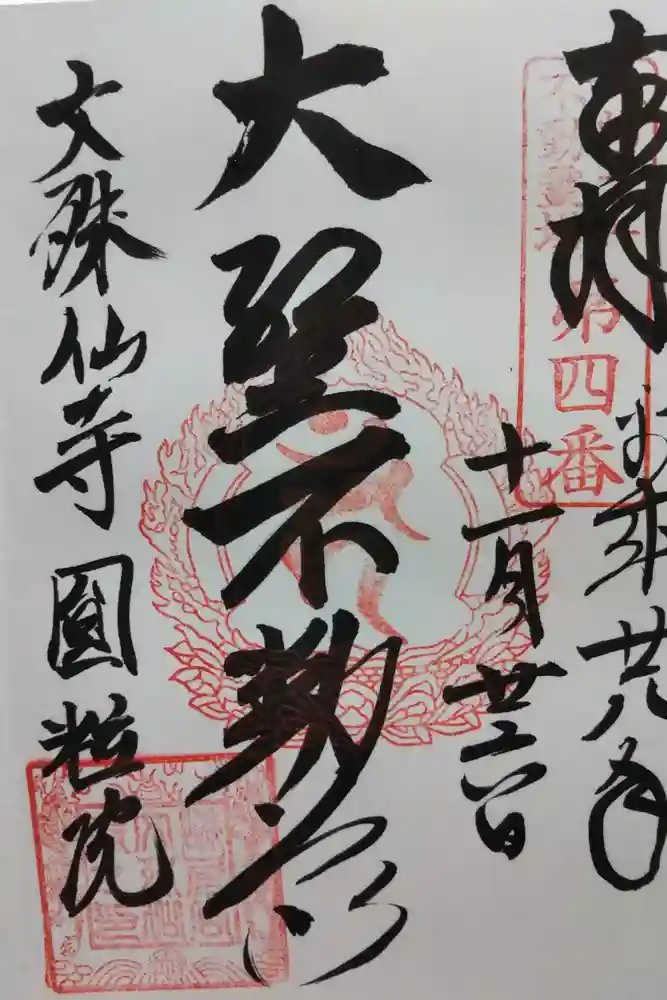 奉拝
平成廿八年
十一月廿六日
大聖不動尊
文殊仙寺 圓粒院
不動霊場 第四番